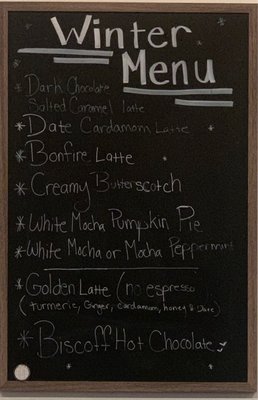 Winter
Menu
* Dark Chocolate
Salted Caramel latte
* Date Cardamom Latte
* Bonfire Latte
* Creamy Butterscotch
* White Mocha Pumpkin Pie
* White Mocha or Mocha Peppermint
* Golden Latte (no espresso
(turmeric, Ginger, cardamom, honey & Date)
* Biscoff Hot Chocolate